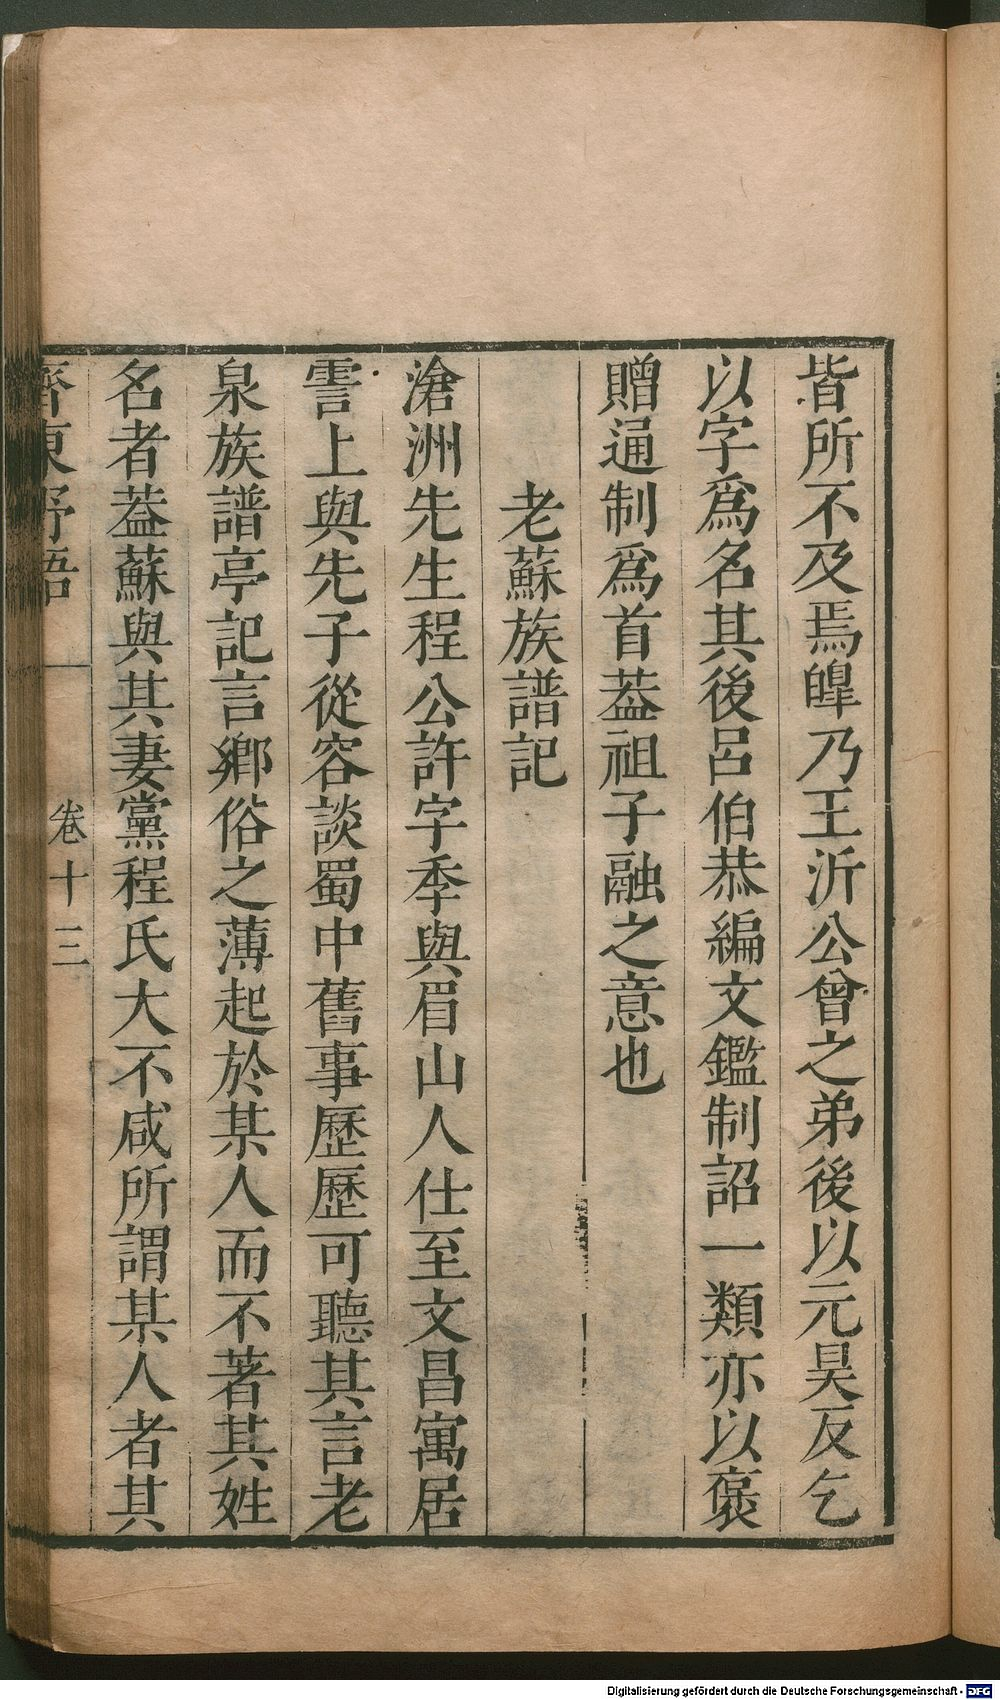 皆所不及焉皥乃王沂公曾之弟後以元昊反乞
以字爲名其後呂伯恭編文鑑制詔一類亦以褒
贈通制爲首葢祖子融之意也
老蘇族譜記
滄洲先生程公許字季與眉山人仕至文昌寓居
霅上與先子從容談蜀中舊事歷歷可聽其言老
泉族譜亭記言鄉俗之薄起於某人而不著其姓
名者葢蘇與其妻黨程氏大不咸所謂某人者其
齊東野語 卷十三
Digitalisierung gefördert durch die Deutsche Forschungsgemeinschaft - DFG